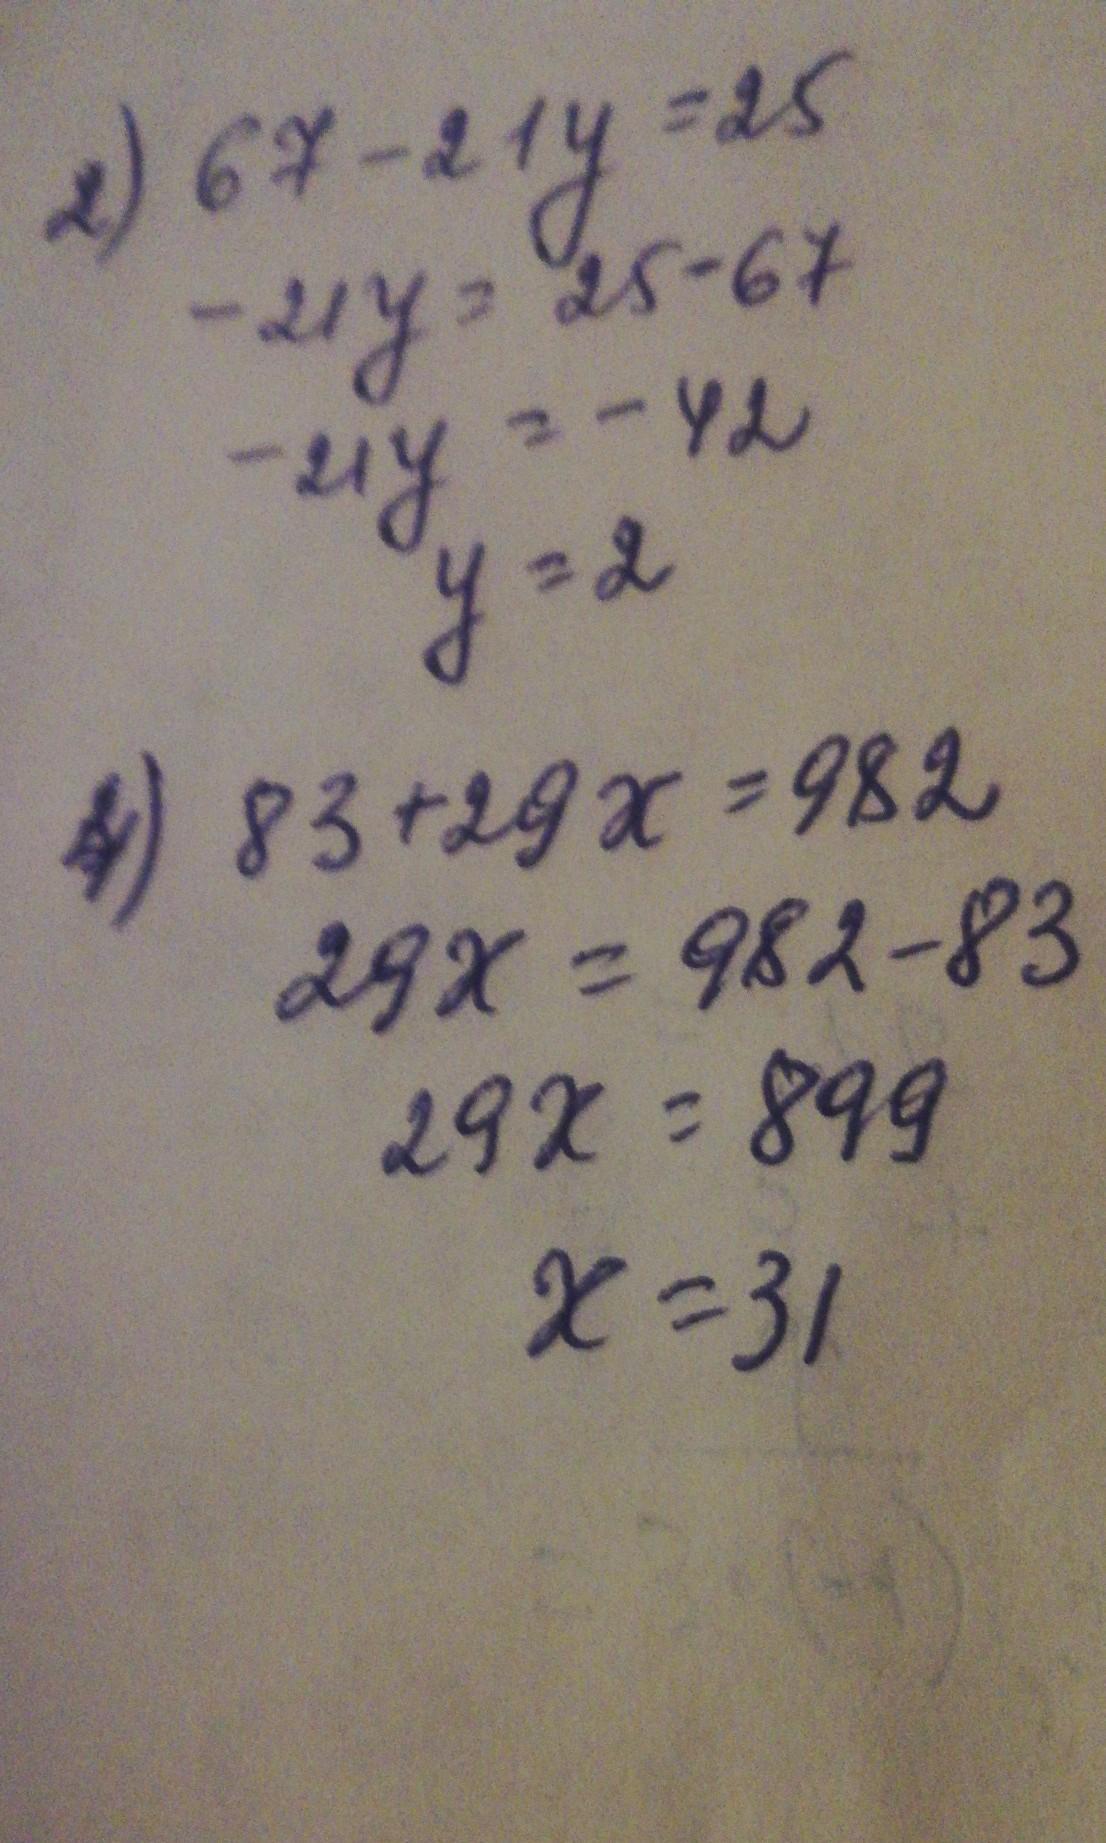 2) 67-21y=25
-21y=25-67
-21y=-42
y=2
4) 83+29x=982
29x=982-83
29x=899
x=31